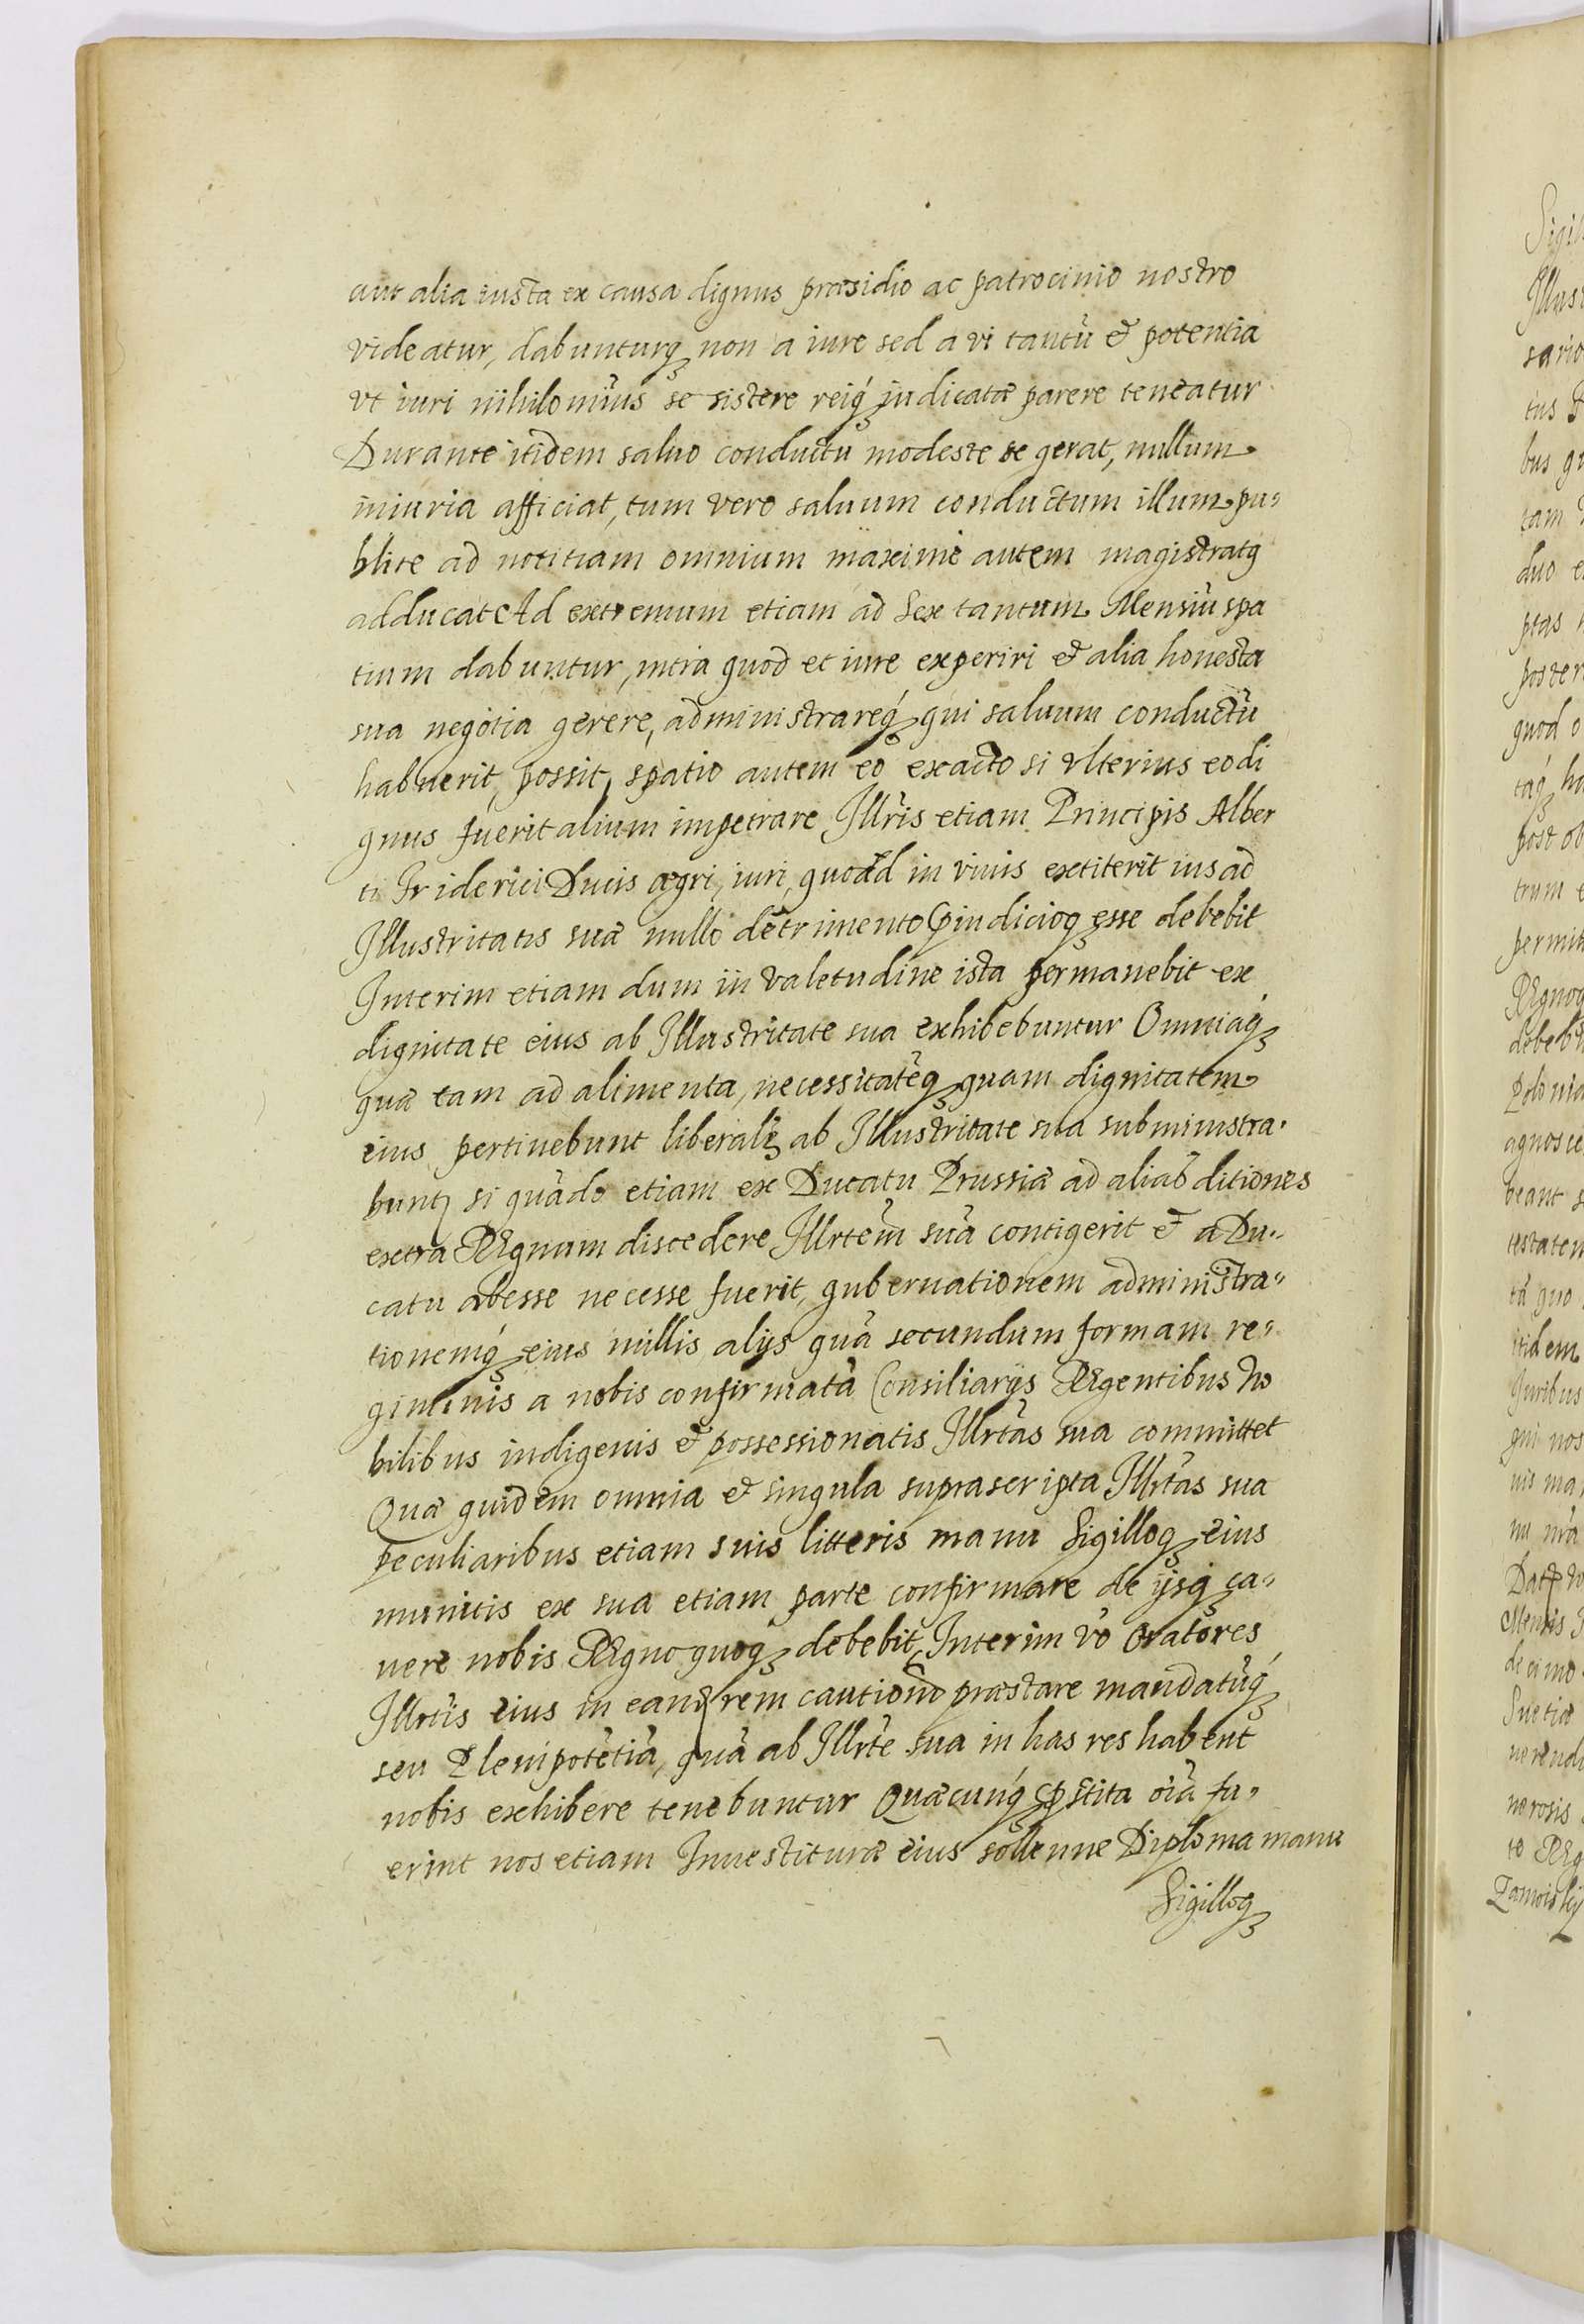 aut alia iusta ex causa dignus præsidio ac patrocinio nostro
videatur, dabunturq̨ non a iure sed a vi tantũ & potentia
vt iuri nihilominus se sistere reiq́ iudicatæ parere teneatur
Durante itidem saluo conductu modeste se gerat, nullum
iniuria afficiat, tum vero saluum conductum illum pu=
blice ad notitiam omnium maxime autem magistratq̨
adducat Ad extremum etiam ad Sex tantum Mensiũ spa
tium dabuntur, intra quod et iure experiri & alia honesta
sua negotia gerere, administrareq́ qui saluum conductũ
habuerit, possit, spatio autem eo exacto si vlterius eo di
gnus fuerit alium impetrare Illr̃is etiam Principis Alber
ti Friderici Ducis ægri, iuri, quoad in viuis extiterit ius ad
Illustritatis suæ nullo detrimento p̃iudicioq̨ esse debebit
Interim etiam dum in valetudine ista permanebit ex
dignitate eius ab Illustritate sua exhibebuntur Omniaq́
quæ tam ad alimenta, necessitatẽq̨ quam dignitatem
eius pertinebunt liberalr̃ ab Illustritate sua subministra=
bunt̃ si quãdo etiam ex Ducatu Prussiæ ad alias ditiones
extra Regnum discedere Illrtem̃ suã contigerit & a Du=
catu abesse necesse fuerit, gubernationem administra=
tionemq́ eius nullis alijs quã secundum formam re=
giminis a nobis confirmatã Consiliarijs Regentibus No
bilibus indigenis & possessionatis Illrtãs sua committet
Quæ quidem omnia & singula suprascripta Illrtãs sua
peculiaribus etiam suis litteris manu Sigilloq̨ eius
munitis ex sua etiam parte confirmare de ijsq́ ca=
uere nobis Regnoquoq̨ debebit, Interim võ Oratores
Illrtĩs eius in eand̃ rem cautionẽ præstare mandatũq́
seu Plenipotẽtiã, quã ab Illrtẽ sua in has res habent
nobis exhibere tenebuntur Quæcunq́ p̃stita oĩa fu=
erint nos etiam Inuestituræ eius sollenne Diploma manu
Sigilloq̨